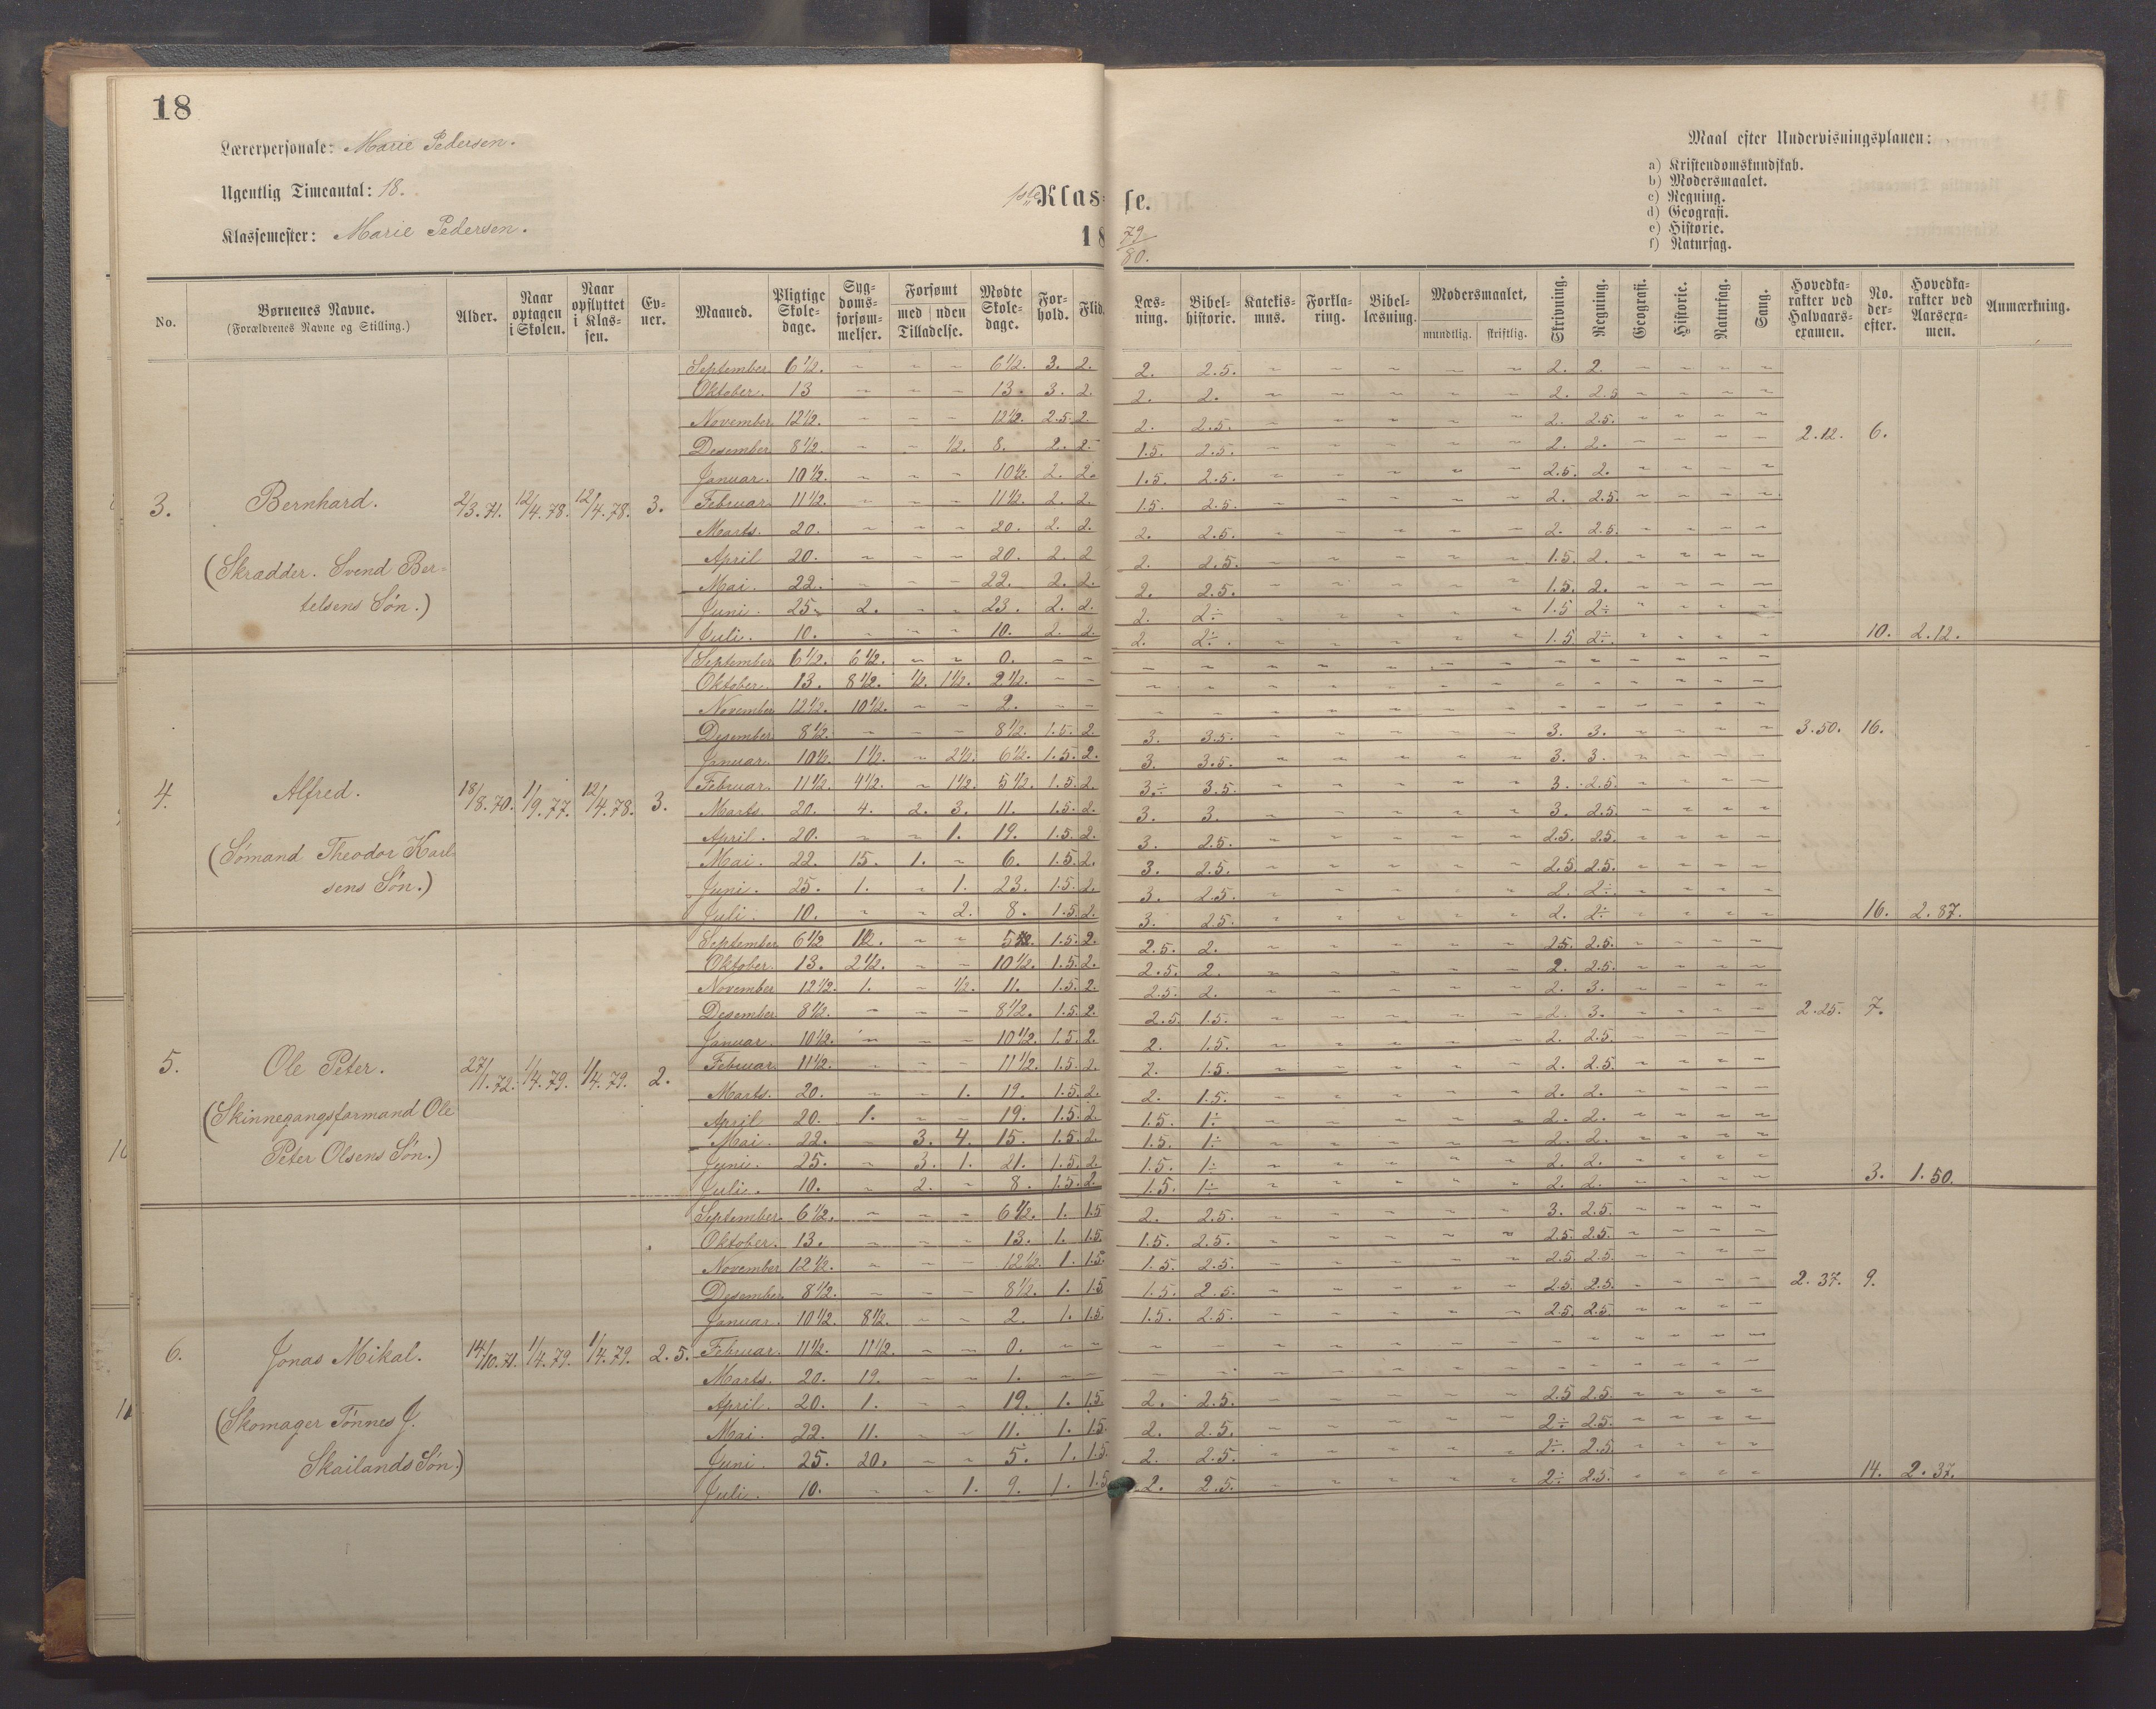 18
Lærerpersonale: Marie Pedersen.
Ugentlig Timeantal: 18.
Klassemester: Marie Pedersen.
1ste Klasse.
18 79/80.
Maal efter Undervisningsplanen:
a) Kristendomskundskab.
b) Modersmaalet.
c) Regning.
d) Geografi.
e) Historie.
f) Naturfag.
No. | Børnenes Navne. (Forældrenes Navne og Stilling.) | Alder. | Naar optagen i Skolen. | Naar opflyttet i Klassen. | Evner. | Maaned. | Pligtige Skoledage. | Sygdomsforsømmelser. | Forsømt med Tilladelse. | uden Tilladelse. | Mødte Skoledage. | Forhold. | Flid. | Læsning. | Bibelhistorie. | Katekismus. | Forklaring. | Bibellæsning. | Modersmaalet, mundtlig. | skriftlig. | Skrivning. | Regning. | Geografi. | Historie. | Naturfag. | Sang. | Hovedkarakter ved Halvaarsexamen. | No. derefter. | Hovedkarakter ved Aarsexamen. | Anmærkning.
3. Bernhard. 2/3.71. 12/4.78. 12/4.78. 3.
(Skrædder. Svend Bertelsens Søn.)
September 6½. ~ ~ ~ 6½. 3. 2. 2. 2.5. ~ ~ ~ ~ ~ 2. 2. ~ ~ ~ ~
Oktober. 13 ~ ~ ~ 13. 3. 2. 2. 2. ~ ~ ~ ~ ~ 2. 2.5 ~ ~ ~ ~
November 12½. ~ ~ ~ 12½. 2.5. 2. 2. 2.5. ~ ~ ~ ~ ~ 2. 2.5. ~ ~ ~ ~
Desember 8½. ~ ~ ½. 8. 2. 2. 1.5. 2.5. ~ ~ ~ ~ ~ 2. 2. ~ ~ ~ ~ 2.12. 6.
Januar. 10½. ~ ~ ~ 10½. 2. 2. 1.5. 2.5. ~ ~ ~ ~ ~ 2.5. 2. ~ ~ ~ ~
Februar. 11½. ~ ~ ~ 11½. 2. 2. 1.5. 2.5. ~ ~ ~ ~ ~ 2. 2.5. ~ ~ ~ ~
Marts. 20. ~ ~ ~ 20. 2. 2. 2. 2.5. ~ ~ ~ ~ ~ 2. 2.5. ~ ~ ~ ~
April 20. ~ ~ ~ 20. 2. 2 2. 2.5. ~ ~ ~ ~ ~ 1.5. 2. ~ ~ ~ ~
Mai. 22. ~ ~ ~ 22. 2. 2. 2. 2.5. ~ ~ ~ ~ ~ 1.5. 2. ~ ~ ~ ~
Juni. 25. 2. ~ ~ 23. 2. 2. 2. 2÷ ~ ~ ~ ~ ~ 1.5 2÷ ~ ~ ~ ~
Juli. 10. ~ ~ ~ 10. 2. 2. 2. 2÷. ~ ~ ~ ~ ~ 1.5 2÷. ~ ~ ~ ~ 10. 2.12.
4. Alfred. 18/8.70. 1/9.77. 12/4.78. 3.
(Sömand Theodor Karlsens Søn.)
September 6½. 6½. ~ ~ 0. ~ ~ ~ ~ ~ ~ ~ ~ ~ ~ ~ ~ ~ ~ ~
Oktober. 13. 8½. ½. 1½. 2½. ~ ~ ~ ~ ~ ~ ~ ~ ~ ~ ~ ~ ~ ~ ~
November 12½. 10½. ~ ~ 2. ~ ~ ~ ~ ~ ~ ~ ~ ~ ~ ~ ~ ~ ~ ~
Desember 8½. ~ ~ ~ 8½. 1.5. 2. 3. 3.5. ~ ~ ~ ~ ~ 3. 3. ~ ~ ~ ~ 3.50. 16.
Januar. 10½. 1½. ~ 2½. 6½. 1.5. 2. 3. 3.5. ~ ~ ~ ~ ~ 3. 3. ~ ~ ~ ~
Februar. 11½. 4½. ~ 1½. 5½. 1.5. 2. 3÷. 3.5. ~ ~ ~ ~ ~ 3. 2.5. ~ ~ ~ ~
Marts. 20. 4. 2. 3. 11. 1.5. 2. 3. 3. ~ ~ ~ ~ ~ 3. 2.5. ~ ~ ~ ~
April. 20. ~ ~ 1. 19. 1.5. 2. 3. 2.5. ~ ~ ~ ~ ~ 2.5. 2.5. ~ ~ ~ ~
Mai. 22. 15. 1. ~ 6. 1.5. 2. 3. 2.5. ~ ~ ~ ~ ~ 2.5. 2.5. ~ ~ ~ ~
Juni. 25. 1. ~ 1. 23. 1.5. 2. 3. 2.5. ~ ~ ~ ~ ~ 2. 2÷. ~ ~ ~ ~
Juli. 10. ~ ~ 2. 8. 1.5. 2. 3. 2.5. ~ ~ ~ ~ ~ 2. 2÷ ~ ~ ~ ~ 16. 2.87.
5. Ole Peter. 27/11.72. 1/4.79. 1/4.79. 2.
(Skinnegangsformand Ole Peter Olsens Søn.)
September 6½ 1½. ~ ~ 1.5. 2. 2.5. 2. ~ ~ ~ ~ ~ 2.5. 2.5. ~ ~ ~ ~
Oktober. 13. 2½. ~ ~ 10½. 1.5. 2. 2.5. 2. ~ ~ ~ ~ ~ 2. 2.5. ~ ~ ~ ~
November 12½. 1. ~ ½. 11. 1.5. 2. 2.5. 2. ~ ~ ~ ~ ~ 2. 3. ~ ~ ~ ~
Desember 8½. ~ ~ ~ 8½. 1.5. 2. 2.5. 1.5. ~ ~ ~ ~ ~ 2. 3. ~ ~ ~ ~ 2.25. 7.
Januar. 10½. ~ ~ ~ 10½. 1.5. 2. 2. 1.5. ~ ~ ~ ~ ~ 2. 2.5. ~ ~ ~ ~
Februar. 11½. ~ ~ ~ 11½. 1.5. 2. 2. 1.5. ~ ~ ~ ~ ~ 2. 2.5. ~ ~ ~ ~
Marts. 20. ~ ~ 1. 19. 1.5. 2. 2. 1.5. ~ ~ ~ ~ ~ 2. 2. ~ ~ ~ ~
April 20. 1. ~ ~ 19. 1.5. 2. 1.5. 1÷ ~ ~ ~ ~ ~ 2. 2. ~ ~ ~ ~
Mai. 22. ~ 3. 4. 15. 1.5. 2. 1.5. 1÷ ~ ~ ~ ~ ~ 2. 2. ~ ~ ~ ~
Juni. 25. ~ 3. 1. 21. 1.5. 2. 1.5. 1÷ ~ ~ ~ ~ ~ 2. 2. ~ ~ ~ ~
Juli. 10. ~ 2. ~ 8. 1.5. 2. 1.5. 1÷ ~ ~ ~ ~ ~ 2. 2. ~ ~ ~ ~ 3. 1.50.
6. Jonas Mikal. 14/10.71. 1/4.79. 1/4.79. 2.5.
(Skomager Tönnes J. Skailands Søn.)
September. 6½. ~ ~ ~ 6½. 1. 1.5 2. 2.5. ~ ~ ~ ~ ~ 3. 2.5. ~ ~ ~ ~
Oktober. 13. ~ ~ ~ 13. 1. 1.5. 1.5. 2.5. ~ ~ ~ ~ ~ 2.5. 2.5. ~ ~ ~ ~
November 12½. ~ ~ ~ 12½. 1. 1.5. 1.5. 2.5. ~ ~ ~ ~ ~ 2.5. 2.5. ~ ~ ~ ~
Desember 8½. ~ ~ ~ 8½. 1. 1.5. 1.5. 2.5. ~ ~ ~ ~ ~ 2.5. 2.5. ~ ~ ~ ~ 2.37. 9.
Januar. 10½. 8½. ~ ~ 2. 1. 1.5. 1.5. 2.5. ~ ~ ~ ~ ~ 2.5. 2.5. ~ ~ ~ ~
Februar. 11½. 11½. ~ ~ 0. ~ ~ ~ ~ ~ ~ ~ ~ ~ ~ ~ ~ ~ ~ ~
Marts. 20. 19. ~ ~ 1. ~ ~ ~ ~ ~ ~ ~ ~ ~ ~ ~ ~ ~ ~ ~
April. 20. 1. ~ ~ 19. 1. 1.5. 2. 2.5. ~ ~ ~ ~ ~ 2.5 2.5. ~ ~ ~ ~
Mai. 22. 11. ~ ~ 11. 1. 1.5. 2. 2.5. ~ ~ ~ ~ ~ 2÷ 2.5. ~ ~ ~ ~
Juni. 25. 20. ~ ~ 5. 1. 1.5. 2. 2.5. ~ ~ ~ ~ ~ 2÷. 2.5. ~ ~ ~ ~
Juli. 10. ~ ~ 1. 9. 1. 1.5 2. 2.5. ~ ~ ~ ~ ~ 2÷ 2.5. ~ ~ ~ ~ 14. 2.37.